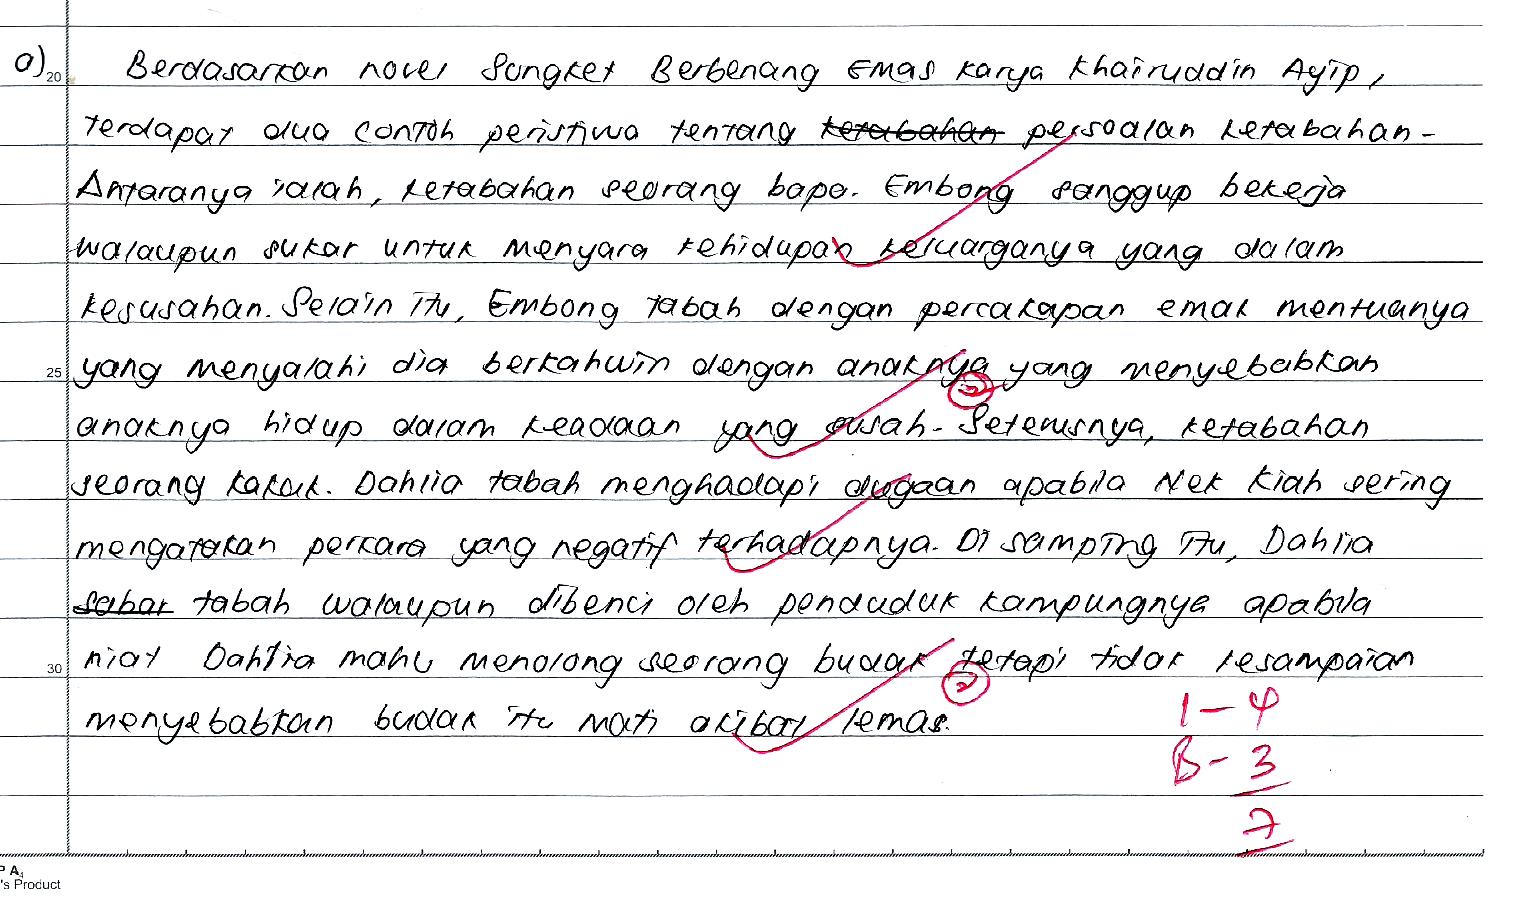 a) 20 Berdasarkan novel Songket Berbenang Emas karya Khairuddin Ayip,
terdapat dua contoh peristiwa tentang ketabahan persoalan ketabahan.
Antaranya ialah, ketabahan seorang bapa. Embong sanggup bekerja
walaupun sukar untuk menyara kehidupan keluarganya yang dalam
kesusahan. Selain itu, Embong tabah dengan percakapan emak mentuanya
25 yang menyalahi dia berkahwin dengan anaknya yang menyebabkan
2
anaknya hidup dalam keadaan yang susah. Seterusnya, ketabahan
seorang kakak. Dahlia tabah menghadapi dugaan apabila Nek Kiah sering
mengatakan perkara yang negatif terhadapnya. Di samping itu, Dahlia
sabar tabah walaupun dibenci oleh penduduk kampungnya apabila
30 niat Dahlia mahu menolong seorang budak tetapi tidak kesampaian
2
menyebabkan budak itu mati akibat lemas.
I - 4
B - 3
7
P A4
's Product